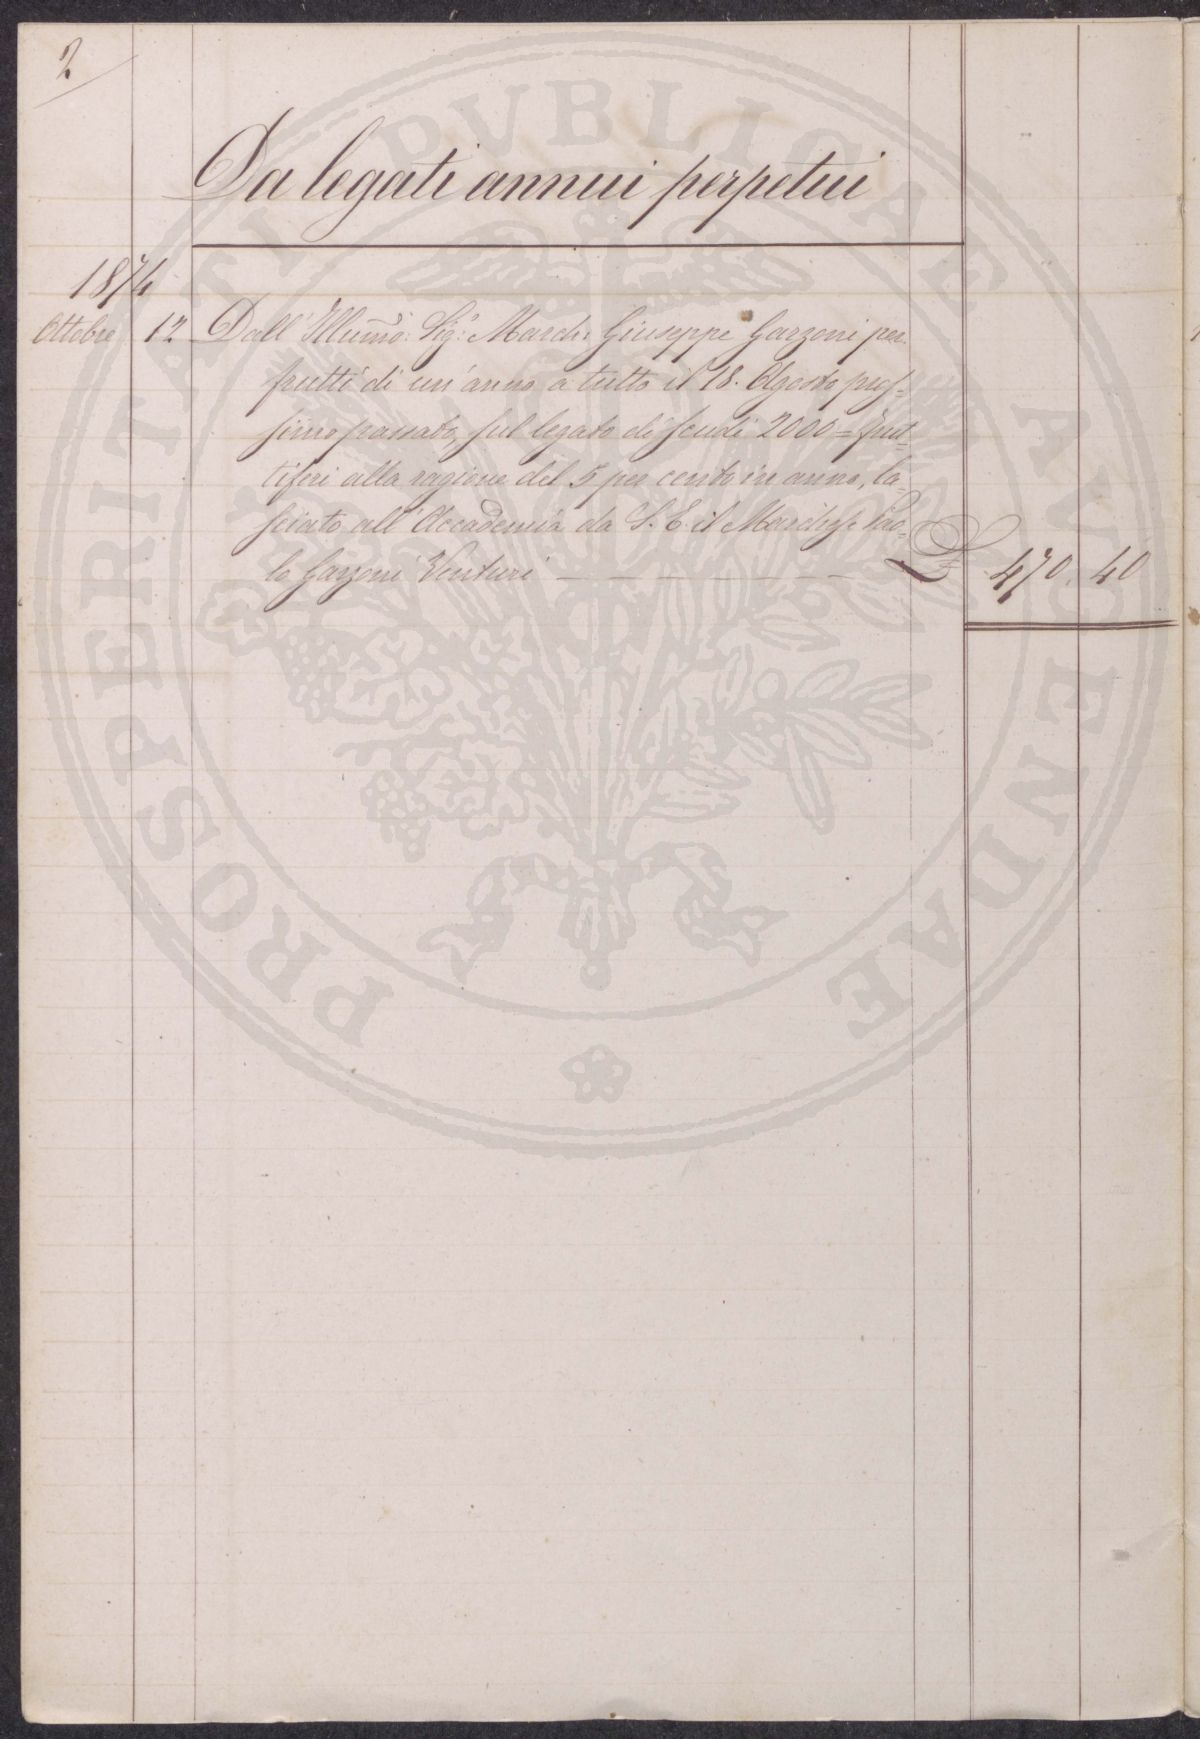 2
Da legati annui perpetui
1874
Ottobre 12 Dall' Illumo: Sig: March: Giuseppe Garzoni per
frutti di un' anno a tutto il 18. Agosto pros=
simo passato, sul legato di scudi 2000 = frut=
tiferi alla ragione del 5 per cento in anno, la=
sciato all' Accademia da S. E. il Marchese Pao=
lo Garzoni Venturi — — — — — — — £ 470. 40
PROSPERITATI PVBLICAE AVGENDAE